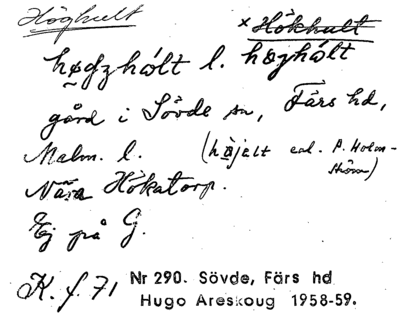 Höghult × Hökhult
høgzhólt l. høzhólt
gård i Sövde sn, Färs hd,
Malm. l. (højelt enl. P. Holm-
ström)
Nära Hökatorp.
Ej på G.
K. f. 71 Nr 290. Sövde, Färs hd
Hugo Areskoug 1958-59.